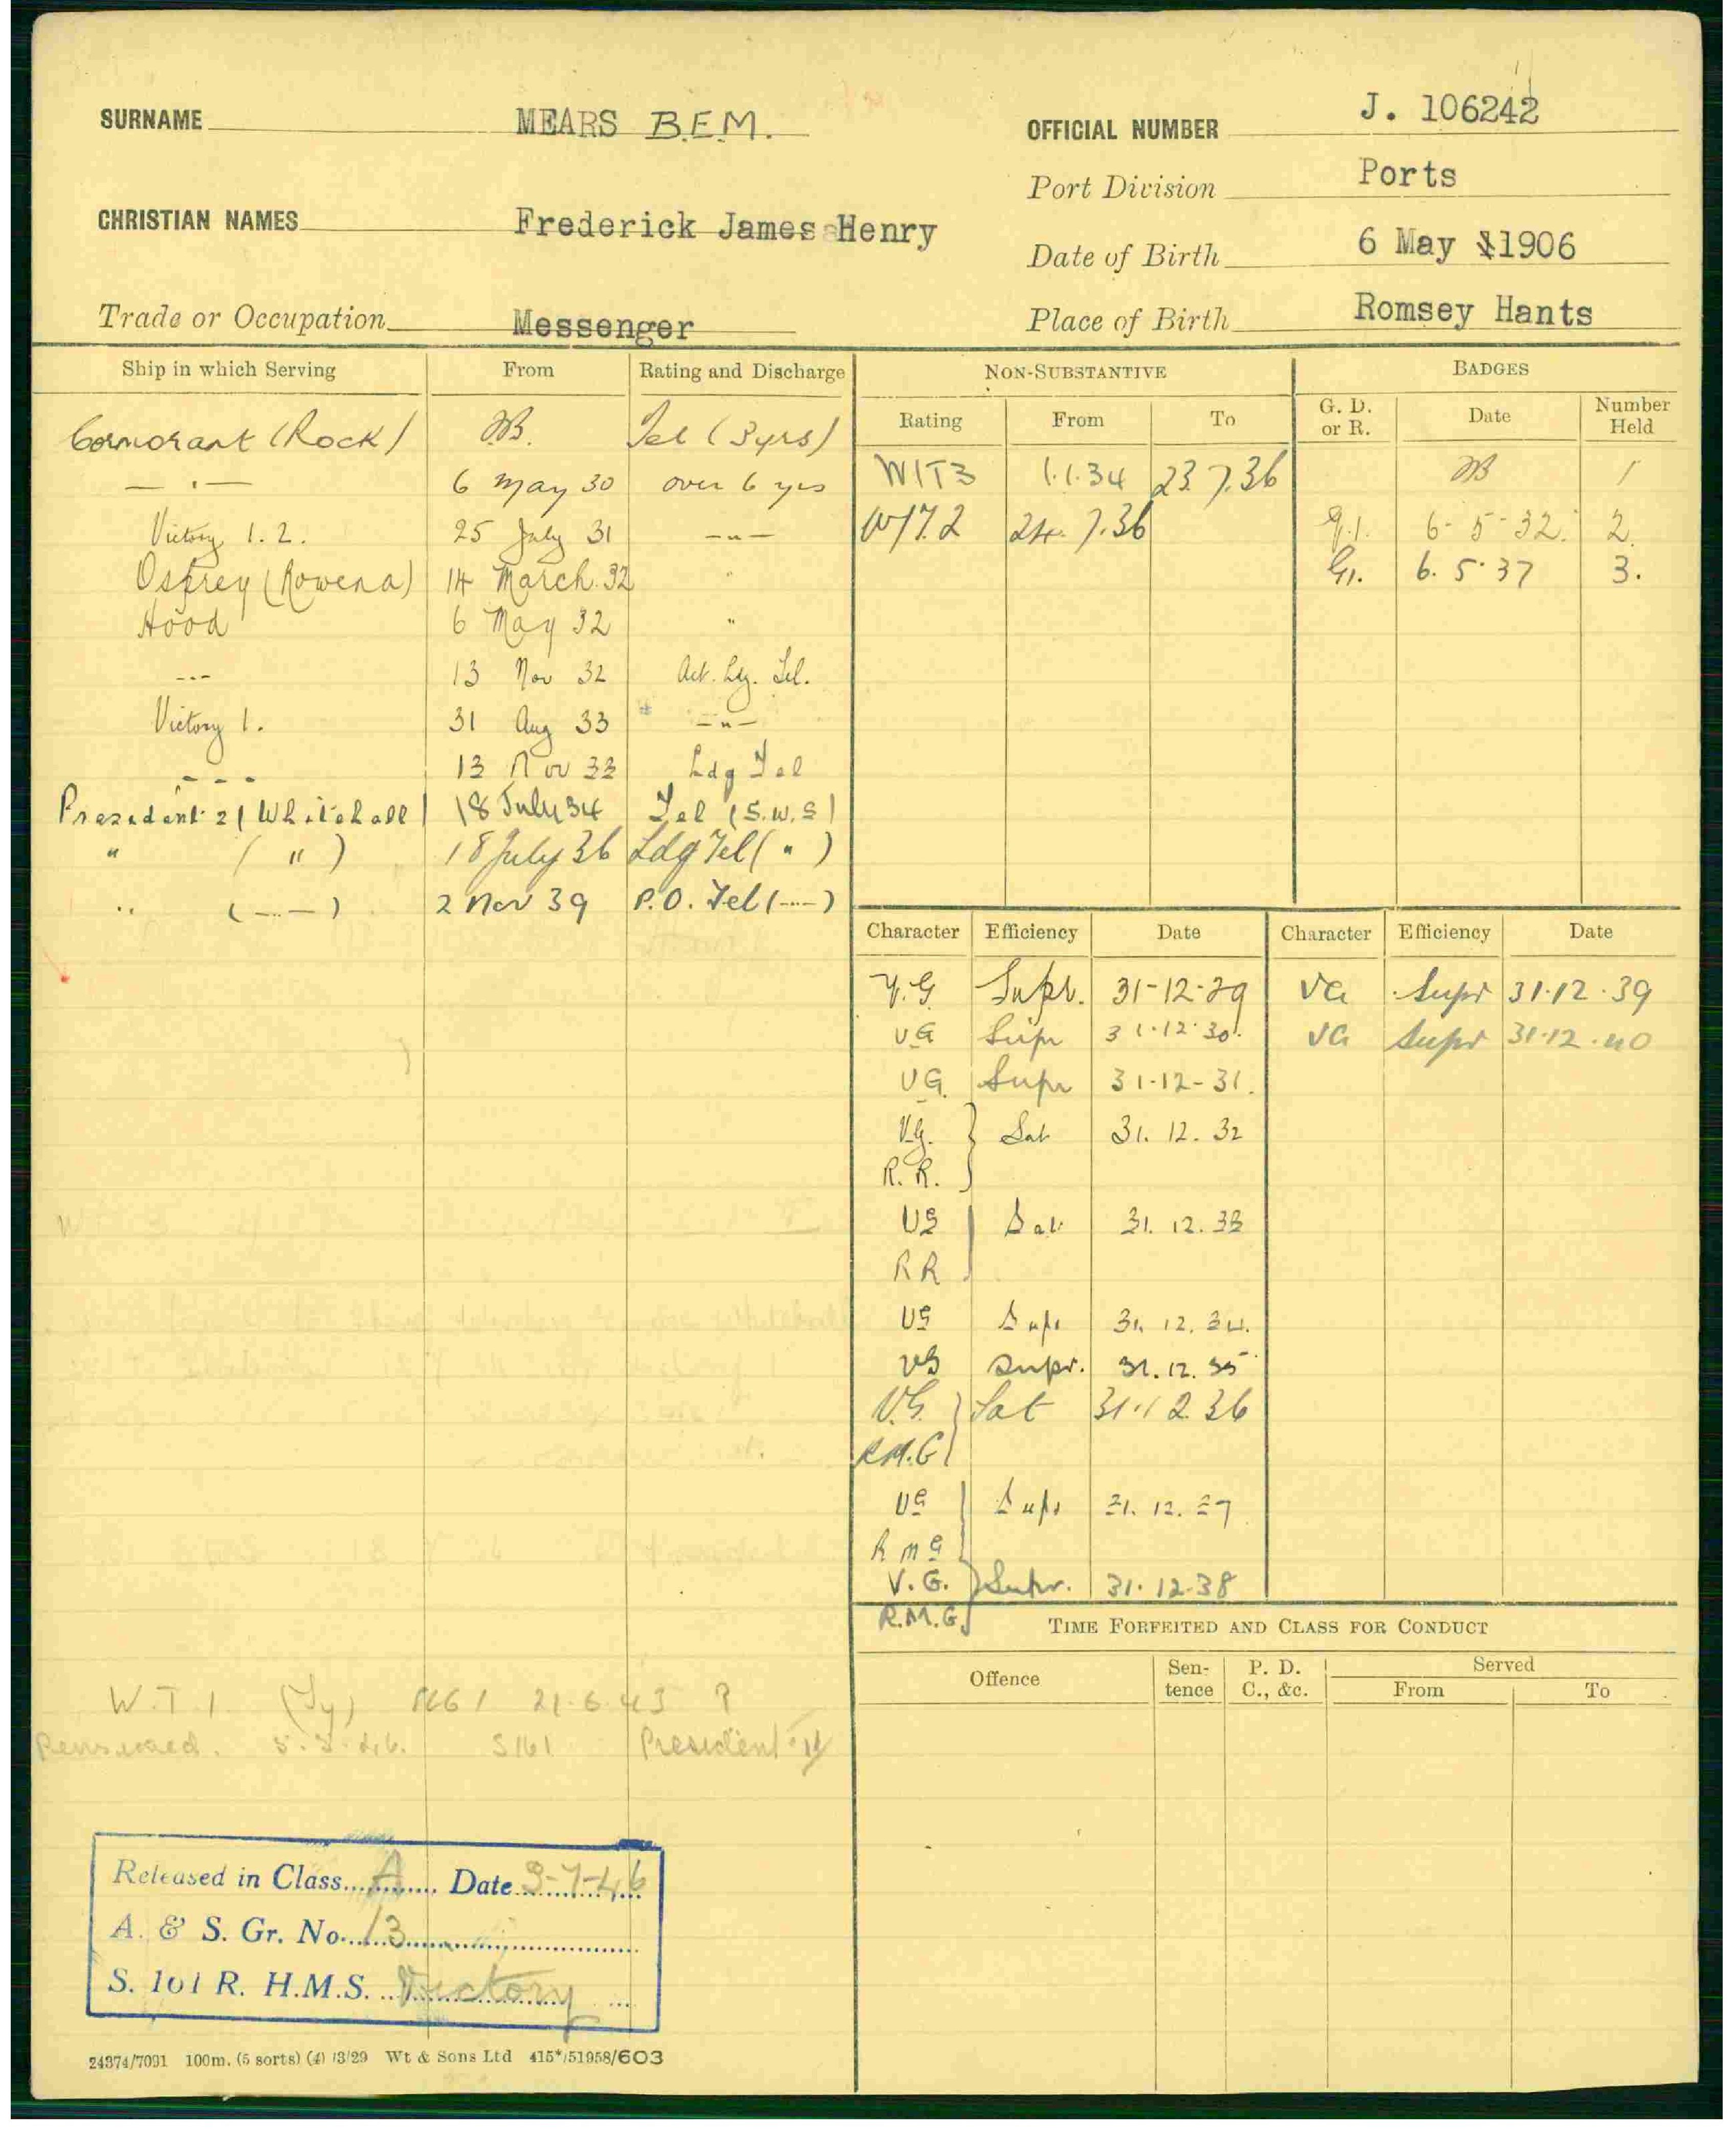 SURNAME MEARS B.E.M.
OFFICIAL NUMBER J. 106242
Port Division Ports
CHRISTIAN NAMES Frederick James Henry
Date of Birth 6 May 1906
Trade or Occupation Messenger
Place of Birth Romsey Hants
Ship in which Serving From Rating and Discharge
Cormorant (Rock) Tel (3yrs)
— " — 6 May 30 over 6 yrs
Victory 1. 2. 25 July 31 — " —
Osprey (Rowena) 14 March. 32 "
Hood 6 May 32 "
--- 13 Nov 32 Act. Ldg. Tel.
Victory 1. 31 Aug 33 — " —
- - - 13 Nov 33 Ldg Tel
President 2 (Whitehall) 18 July 34 Tel (S.W.S)
" ( " ) 18 July 36 Ldg Tel ( " )
" (— " —) 2 Nov 39 P.O. Tel (— " —)
NON-SUBSTANTIVE
Rating From To
WT3 1.1.34 23.7.36
WT.2 24.7.36
BADGES
G. D. or R. Date Number Held
1
G.1. 6-5-32. 2.
G1. 6.5.37 3.
Character Efficiency Date Character Efficiency Date
V.G Supr. 31-12-29 VG Supr 31.12.39
VG Supr 31.12.30. VG Supr 31.12.40
VG. Supr 31-12-31.
V.G. } Sat 31. 12. 32
R. R.
VG } Sat 31. 12. 33
R R
VG Supr 31. 12. 34.
VG Supr. 31.12.35
V.G. } Sat 31.12.36
R.M.G
VG } Supr 31. 12. 37
R M G
V.G. } Supr. 31.12.38
R.M.G.
TIME FORFEITED AND CLASS FOR CONDUCT
Offence Sen-tence P. D. C., &c. Served
From To
W.T.1. (Ty) 21.6.43 P
Pensioned. S161 President
Released in Class A Date 3-7-46
A. & S. Gr. No. 13
S. 161 R. H.M.S. Victory
24374/7091 100m. (5 sorts) (4) 13/29 Wt & Sons Ltd 415*/51958/603